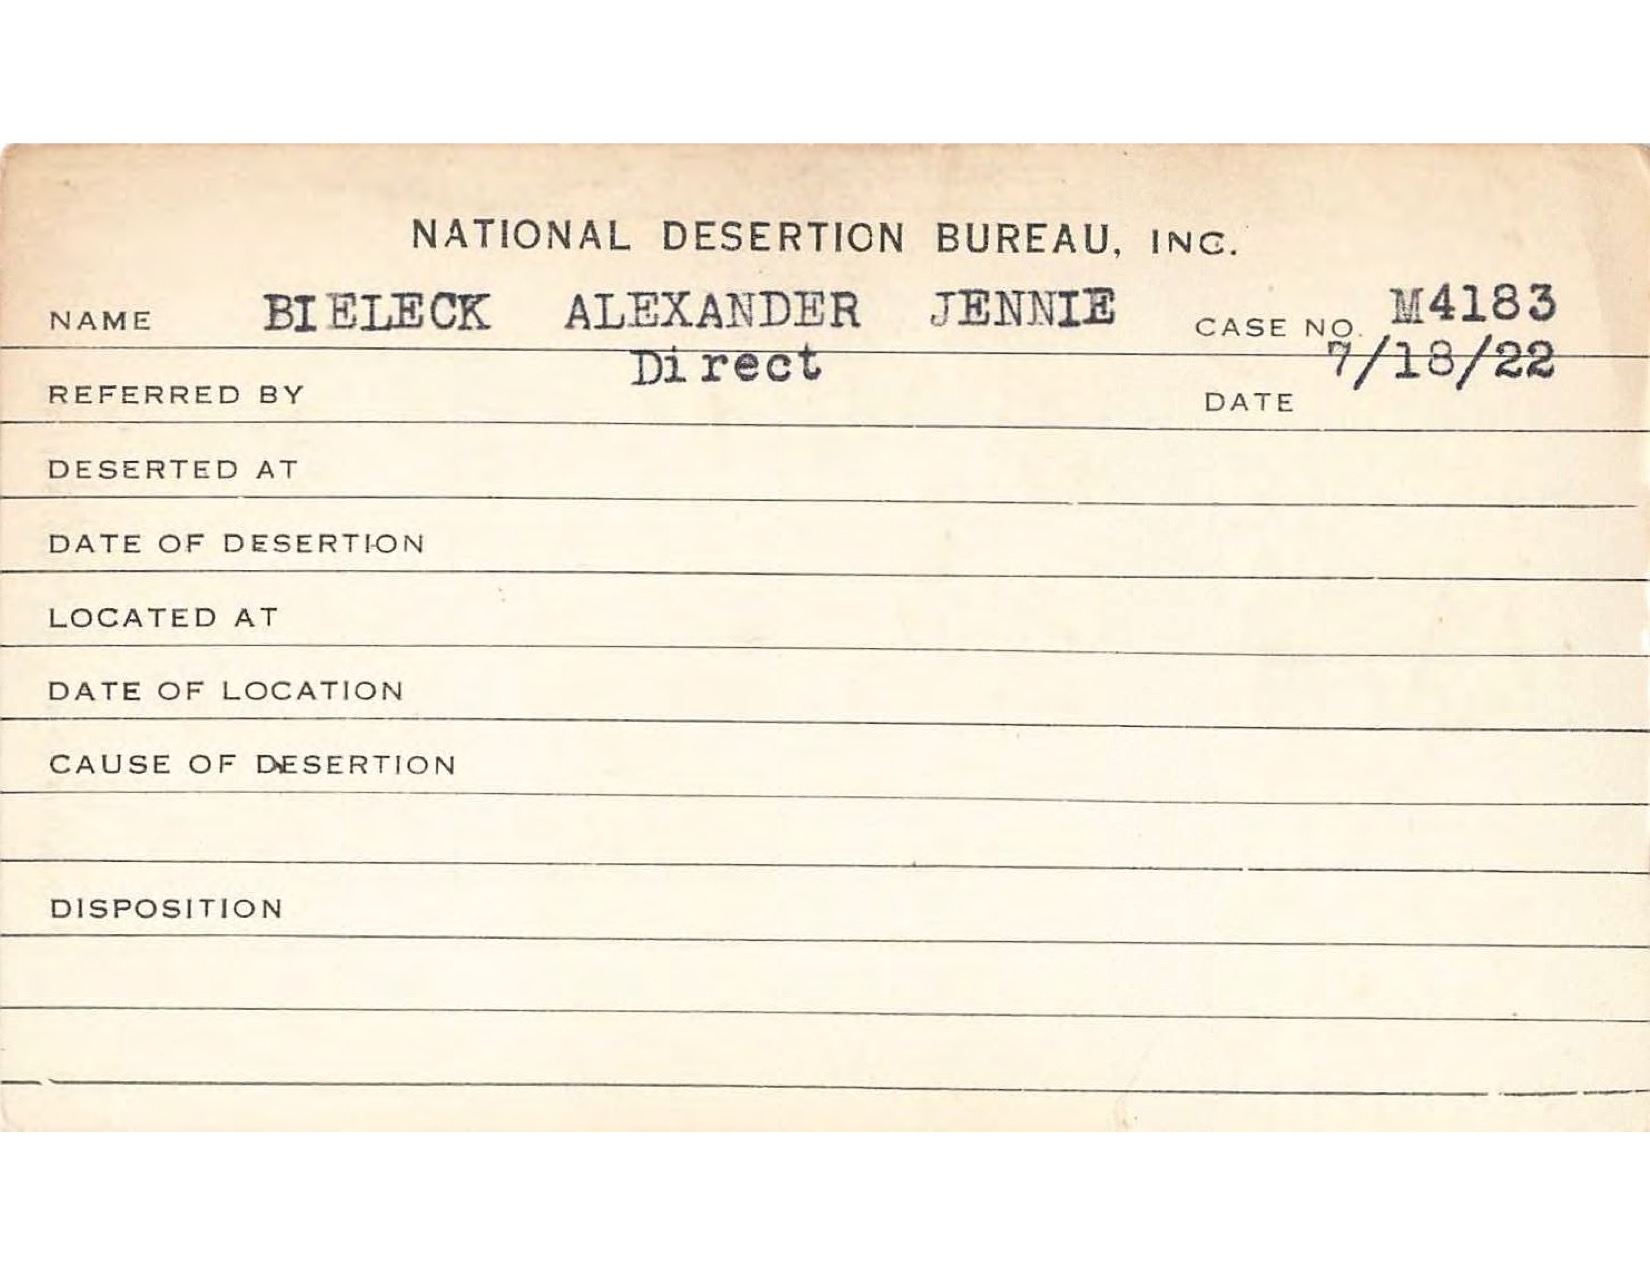 NATIONAL DESERTION BUREAU, INC.
NAME BIELECK ALEXANDER JENNIE CASE NO. M4183
REFERRED BY Direct DATE 7/18/22
DESERTED AT
DATE OF DESERTION
LOCATED AT
DATE OF LOCATION
CAUSE OF DESERTION
DISPOSITION